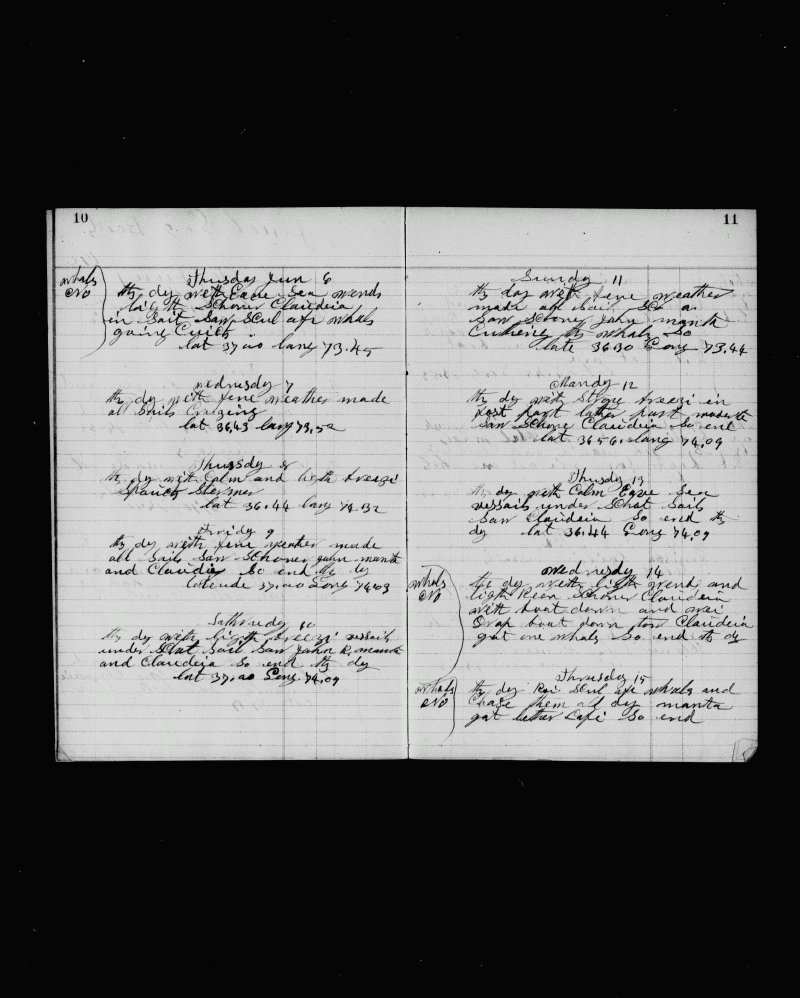 10
Thusday Jun 6
whals
No
thy dey with Eene Sea wends
ligth Schoner Claudeia
in Sait Saw Scul afe whals
going Cuick
lat 37.00 lang 73.45
wednusday 7
thy dey with fene weather made
all Sails Cruzeing
lat 36.43 lang 73.52
thursday 8
thy dey with Calm and ligth breezi
Spauck Stermer
lat 36.44 lang 74.32
Friday 9
thy dey with fene weather made
all Sails Saw Schoner John manta
and Claudia So end thy dey
Latetude 37.00 Long 74.03
Sathruday 10
thy dey with ligth breezi vessails
under Shat Sail Saw John R. manta
and Claudeia So end thy dey
lat 37.20 Long 74.09
11
Sunday 11
thy day with fene weather
made all Sail So a
Saw Schoner John manta
Cutteing thy whals So
late 36.30 Long 73.44
Manday 12
thy dey with Stronc breezi in
fost part later part moderth
Saw Schone Claudeia So end
lat 36.56 lang 74.09
Thusday 13
thy dey with Calm Egree Sea
vessails under Shat Sails
Saw Claudeia So end thy
dey lat 36.44 Long 74.09
wednesdy 14
whals
No
thy dey with ligth wend and
ligth Reen Schoner Claudeia
with boat down and wei
Drap boat down too Claudeia
gat one whals So end th dy
Thursday 15
whals
No
thy dey Rai Scul afe whals and
Chase them al dey manta
gat letter Cafe So end